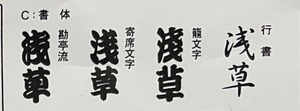 C:書体
勘亭流
浅草
寄席文字
浅草
籠文字
浅草
行書
浅草